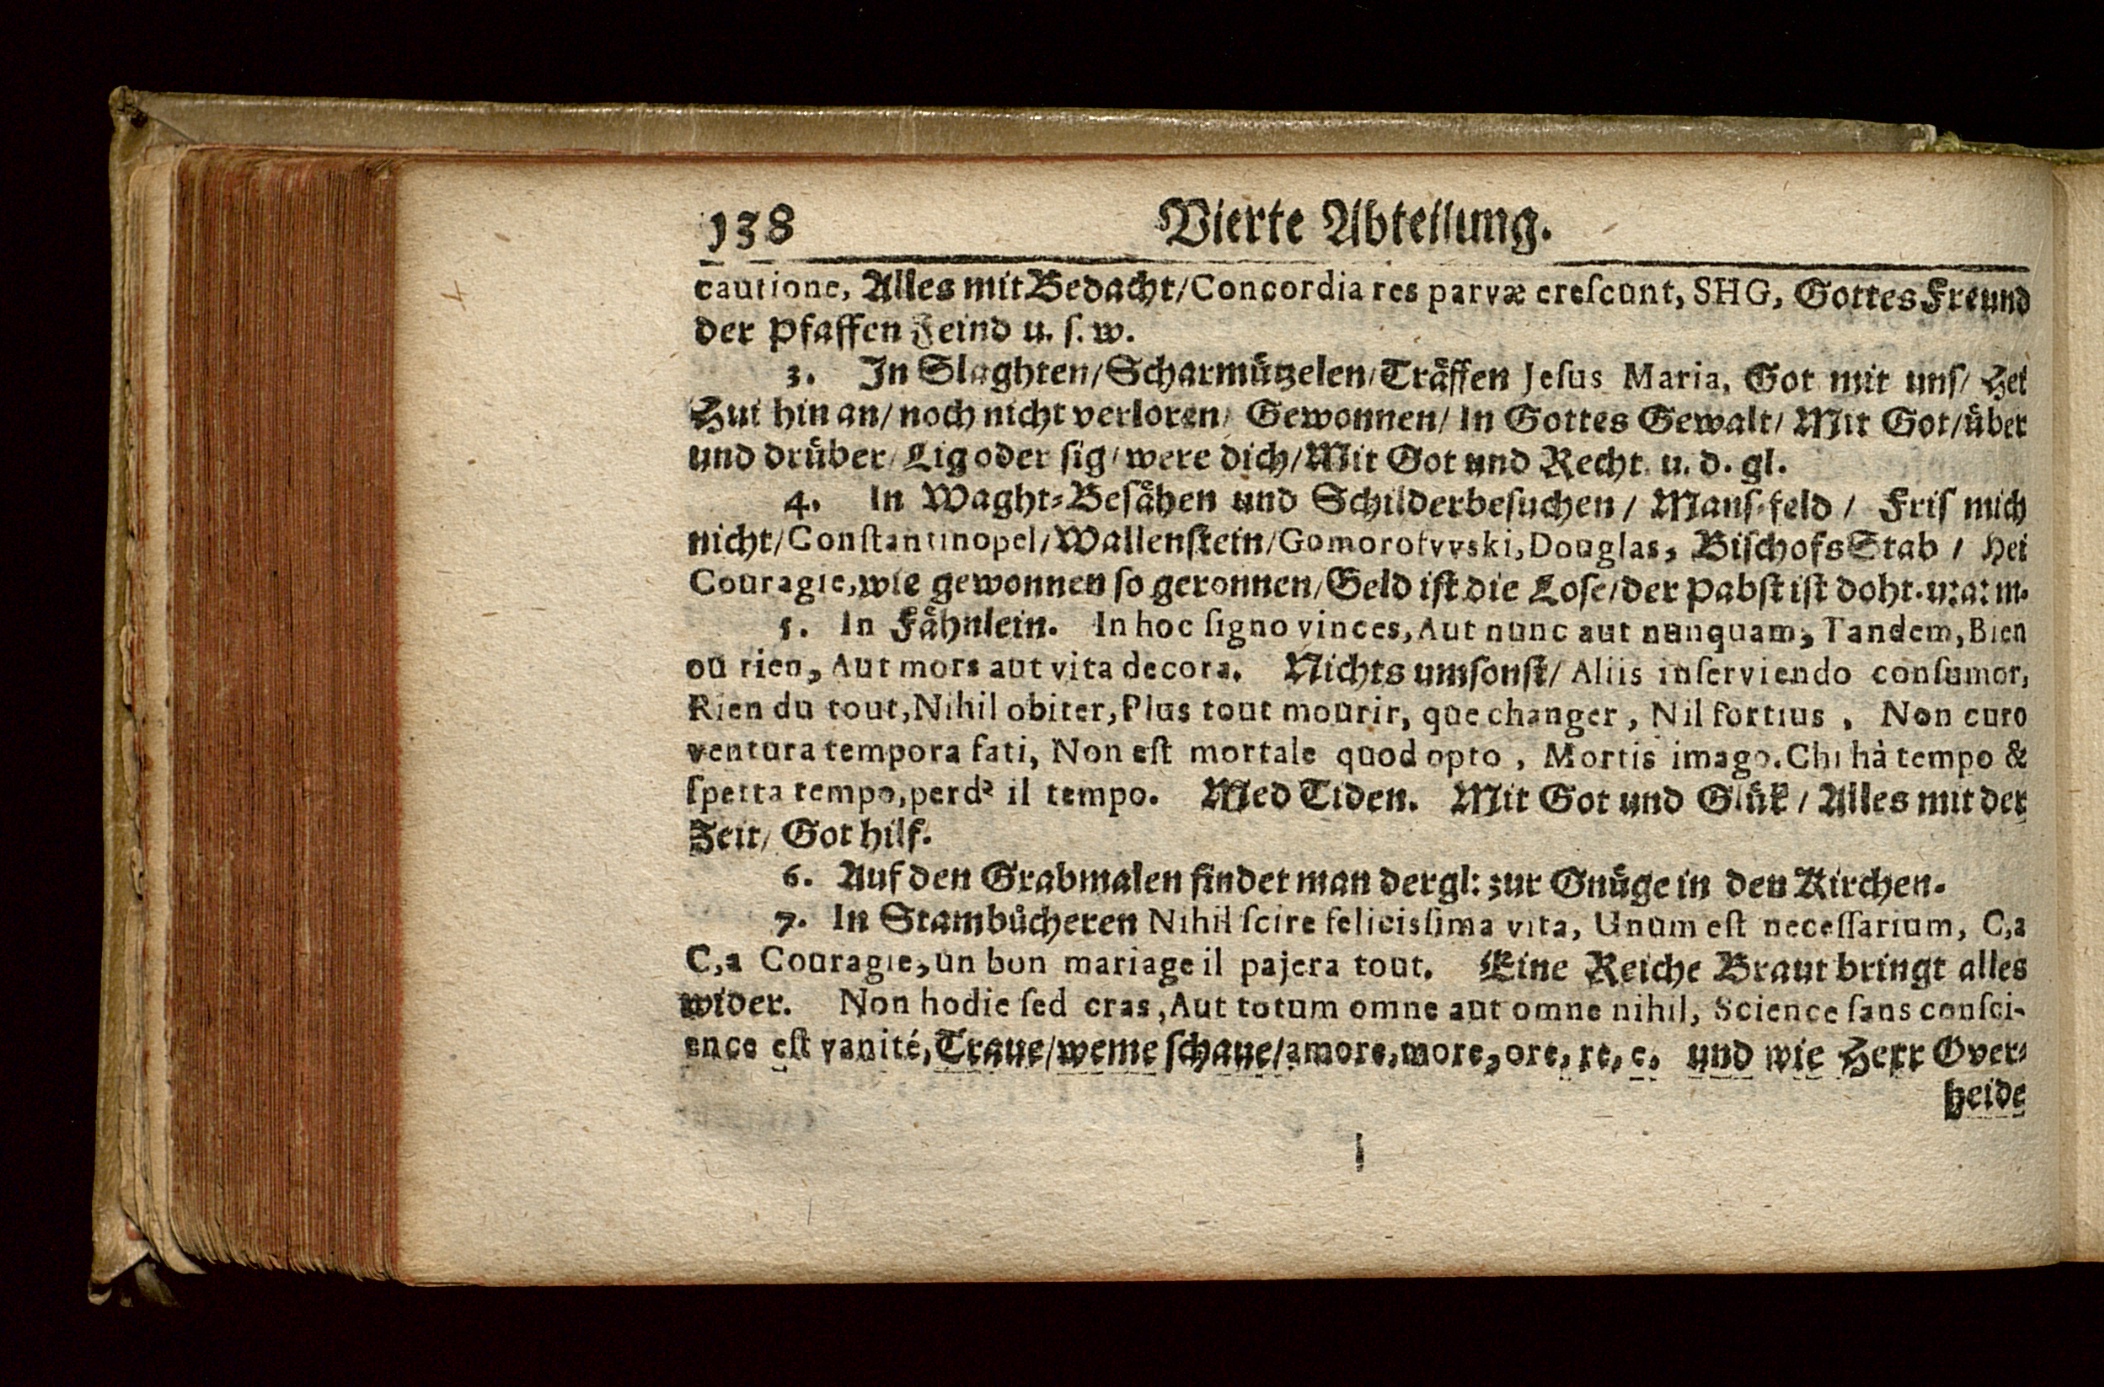 138 Vierte Abteilung.
cautione, Alles mit Bedacht/Concordia res parvæ creſcunt, SHG, Gottes Freund
der Pfaffen Feind u. ſ. w.
3. In Slaghten/Scharmuͤtzelen/Traͤffen Jeſus Maria, Got mit unſ/ Hei
Hui hin an/ noch nicht verloren/ Gewonnen/ In Gottes Gewalt/ Mit Got/uͤber
und druͤber/Lig oder ſig/were dich/Mit Got und Recht u. d. gl.
4. In Waght-Beſaͤhen und Schilderbeſuchen / Manſ-feld / Friſ mich
nicht/Conſtantinopel/Wallenſtein/Gomorofvvski, Douglas, Biſchofs Stab / Hei
Couragie, wie gewonnen ſo geronnen/Geld iſt die Loſe/der Pabſt iſt doht. u: a: m.
5. In Faͤhnlein. In hoc ſigno vinces, Aut nunc aut nunquam, Tandem, Bien
ou rien, Aut mors aut vita decora. Nichts umſonſt/ Aliis inſerviendo conſumor,
Rien du tout, Nihil obiter, Plus tout mourir, que changer, Nil fortius, Non curo
ventura tempora fati, Non eſt mortale quod opto, Mortis imago. Chi hà tempo &
ſpetta tempo, perd' il tempo. Med Tiden. Mit Got und Gluͤk / Alles mit der
Zeit/ Got hilf.
6. Auf den Grabmalen findet man dergl: zur Gnuͤge in den Kirchen.
7. In Stambuͤcheren Nihil ſcire feliciſſima vita, Unum eſt neceſſarium, C,a
C,a Couragie, un bon mariage il pajera tout. Eine Reiche Braut bringt alles
wider. Non hodie ſed cras, Aut totum omne aut omne nihil, Science ſans conſci-
ence eſt vanité, Traue/weme ſchaue/amore, more, ore, re, e. und wie Herr Over-
heide